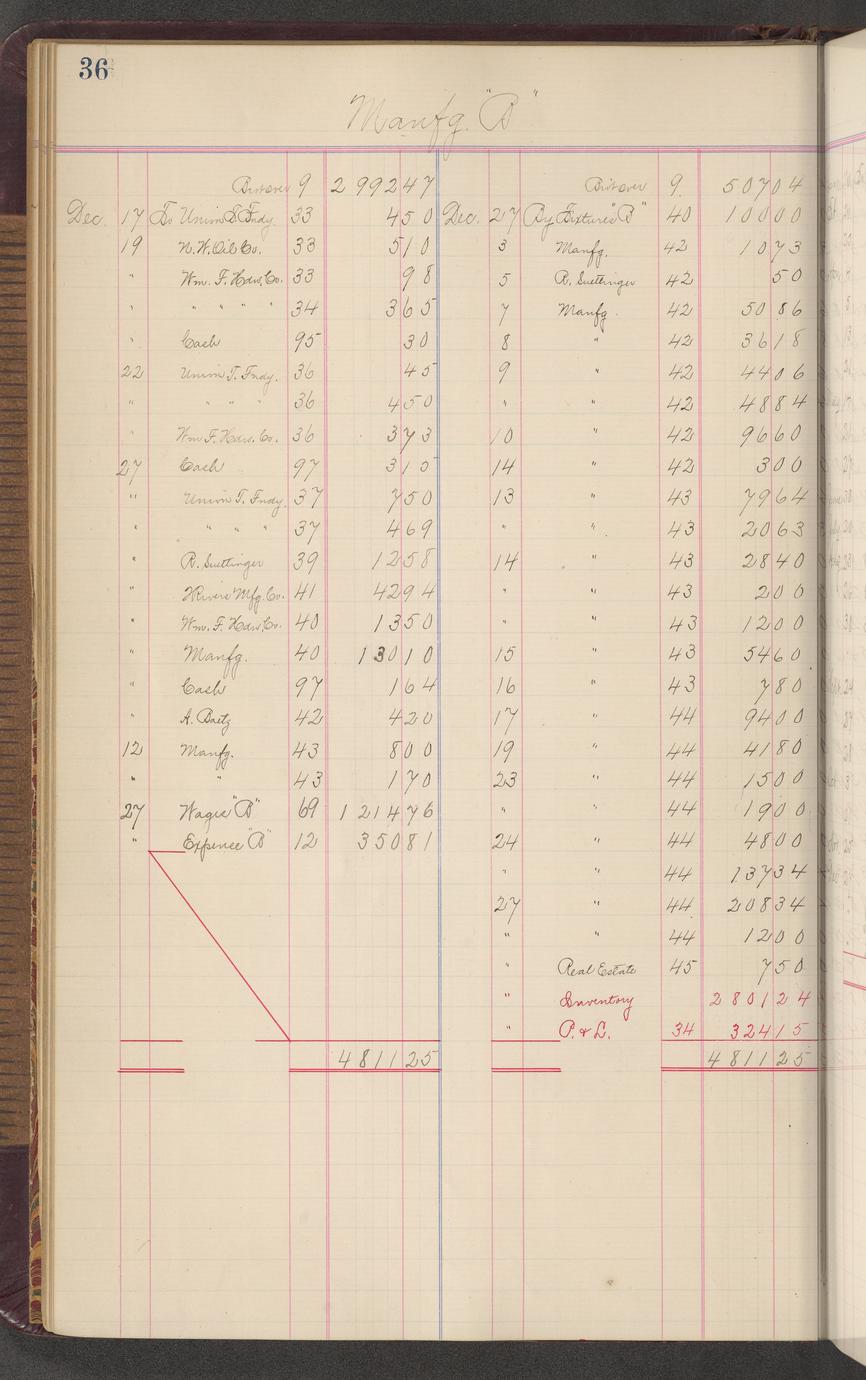 36
Manfg. "B"
Brot over 9 2 992 47
Dec. 17 To Union S. Fndy. 33 4 50
19 N.W. Oil Co. 33 5 10
" Wm. F. Hdw. Co. 33 98
" " " " " 34 3 65
" Cash 95 30
22 Union T. Fndy. 36 45
" " " " 36 4 50
" Wm F. Hdw. Co. 36 3 73
27 Cash 97 3 15
" Union T. Fndy. 37 7 50
" " " " 37 4 69
" R. Suettinger 39 12 58
" 2 Rivers Mfg. Co. 41 42 94
" Wm. F. Hdw. Co. 40 13 50
" Manfg. 40 130 10
" Cash 97 1 64
" A. Baetz 42 4 20
12 Manfg. 43 8 00
" " 43 1 70
27 Wages "B" 69 1 214 76
" Expense "B" 12 350 81
4811 25
Brot over 9. 507 04
Dec. 27 By Fixtures "B" 40 100 00
3 Manfg. 42 10 73
5 R. Suettinger 42 50
7 Manfg. 42 50 86
8 " 42 36 18
9 " 42 44 06
" " 42 48 84
10 " 42 96 60
14 " 42 3 00
13 " 43 79 64
" " 43 20 63
14 " 43 28 40
" " 43 2 00
" " 43 12 00
15 " 43 54 60
16 " 43 7 80
17 " 44 94 00
19 " 44 41 80
23 " 44 15 00
" " 44 19 00
24 " 44 48 00
" " 44 137 34
27 " 44 208 34
" " 44 12 00
" Real Estate 45 7 50
" Inventory 2 801 24
" P. & L. 34 324 15
4811 25